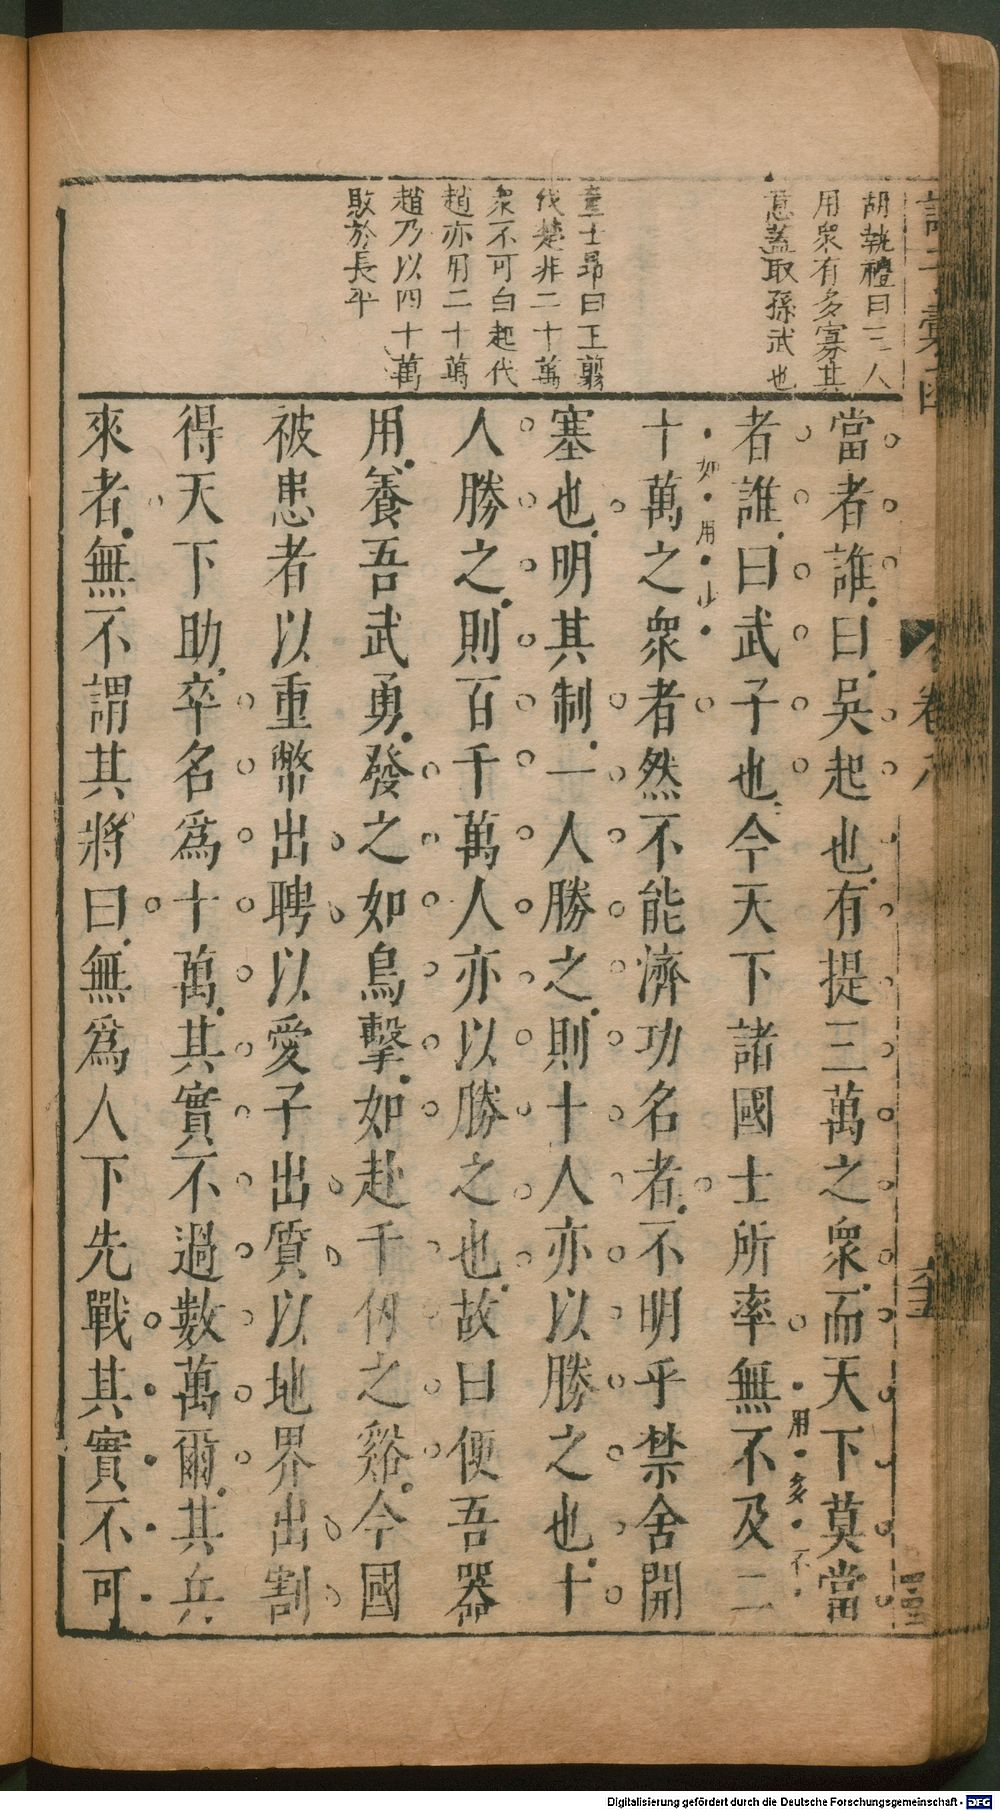 胡執禮曰三人
用衆有多寡其
意蓋取孫武也
童士昂曰王翦
伐楚非二十萬
衆不可白起代
趙亦用二十萬
趙乃以四十萬
敗於長平
當者誰曰吳起也有提三萬之衆而天下莫當
者誰曰武子也今天下諸國士所率無不及二
用多不
如用少
十萬之衆者然不能濟功名者不明乎禁舍開
塞也明其制一人勝之則十人亦以勝之也十
人勝之則百千萬人亦以勝之也故曰便吾器
用養吾武勇發之如鳥擊如赴千仞之谿今國
被患者以重幣出聘以愛子出質以地界出割
得天下助卒名爲十萬其實不過數萬爾其兵
來者無不謂其將曰無爲人下先戰其實不可
卷八
Digitalisierung gefördert durch die Deutsche Forschungsgemeinschaft - DFG